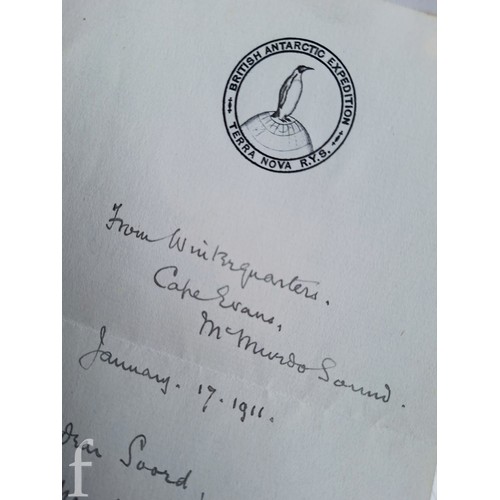 BRITISH ANTARCTIC EXPEDITION
TERRA NOVA R.Y.S.
From Winterquarters.
Cape Evans,
McMurdo Sound.
January. 17. 1911.
Dear Soord,
f